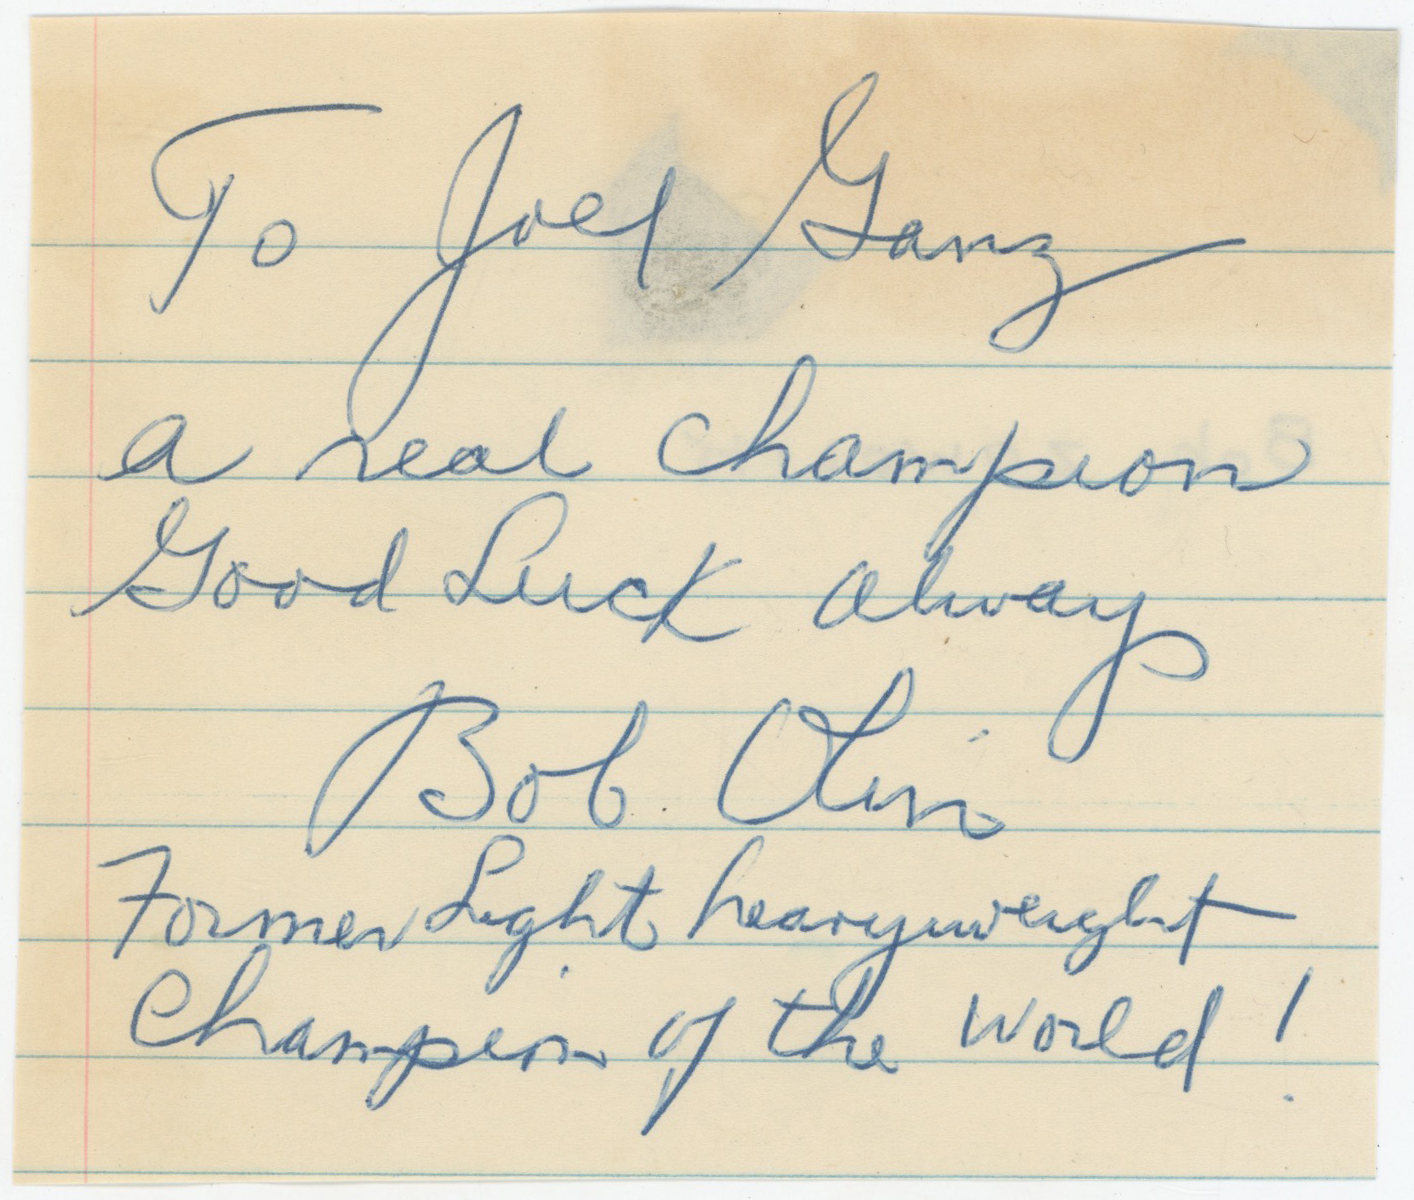 To Joel Ganz
a real champion
Good Luck alway
Bob Olin
Former Light heavyweight
Champion of the World!